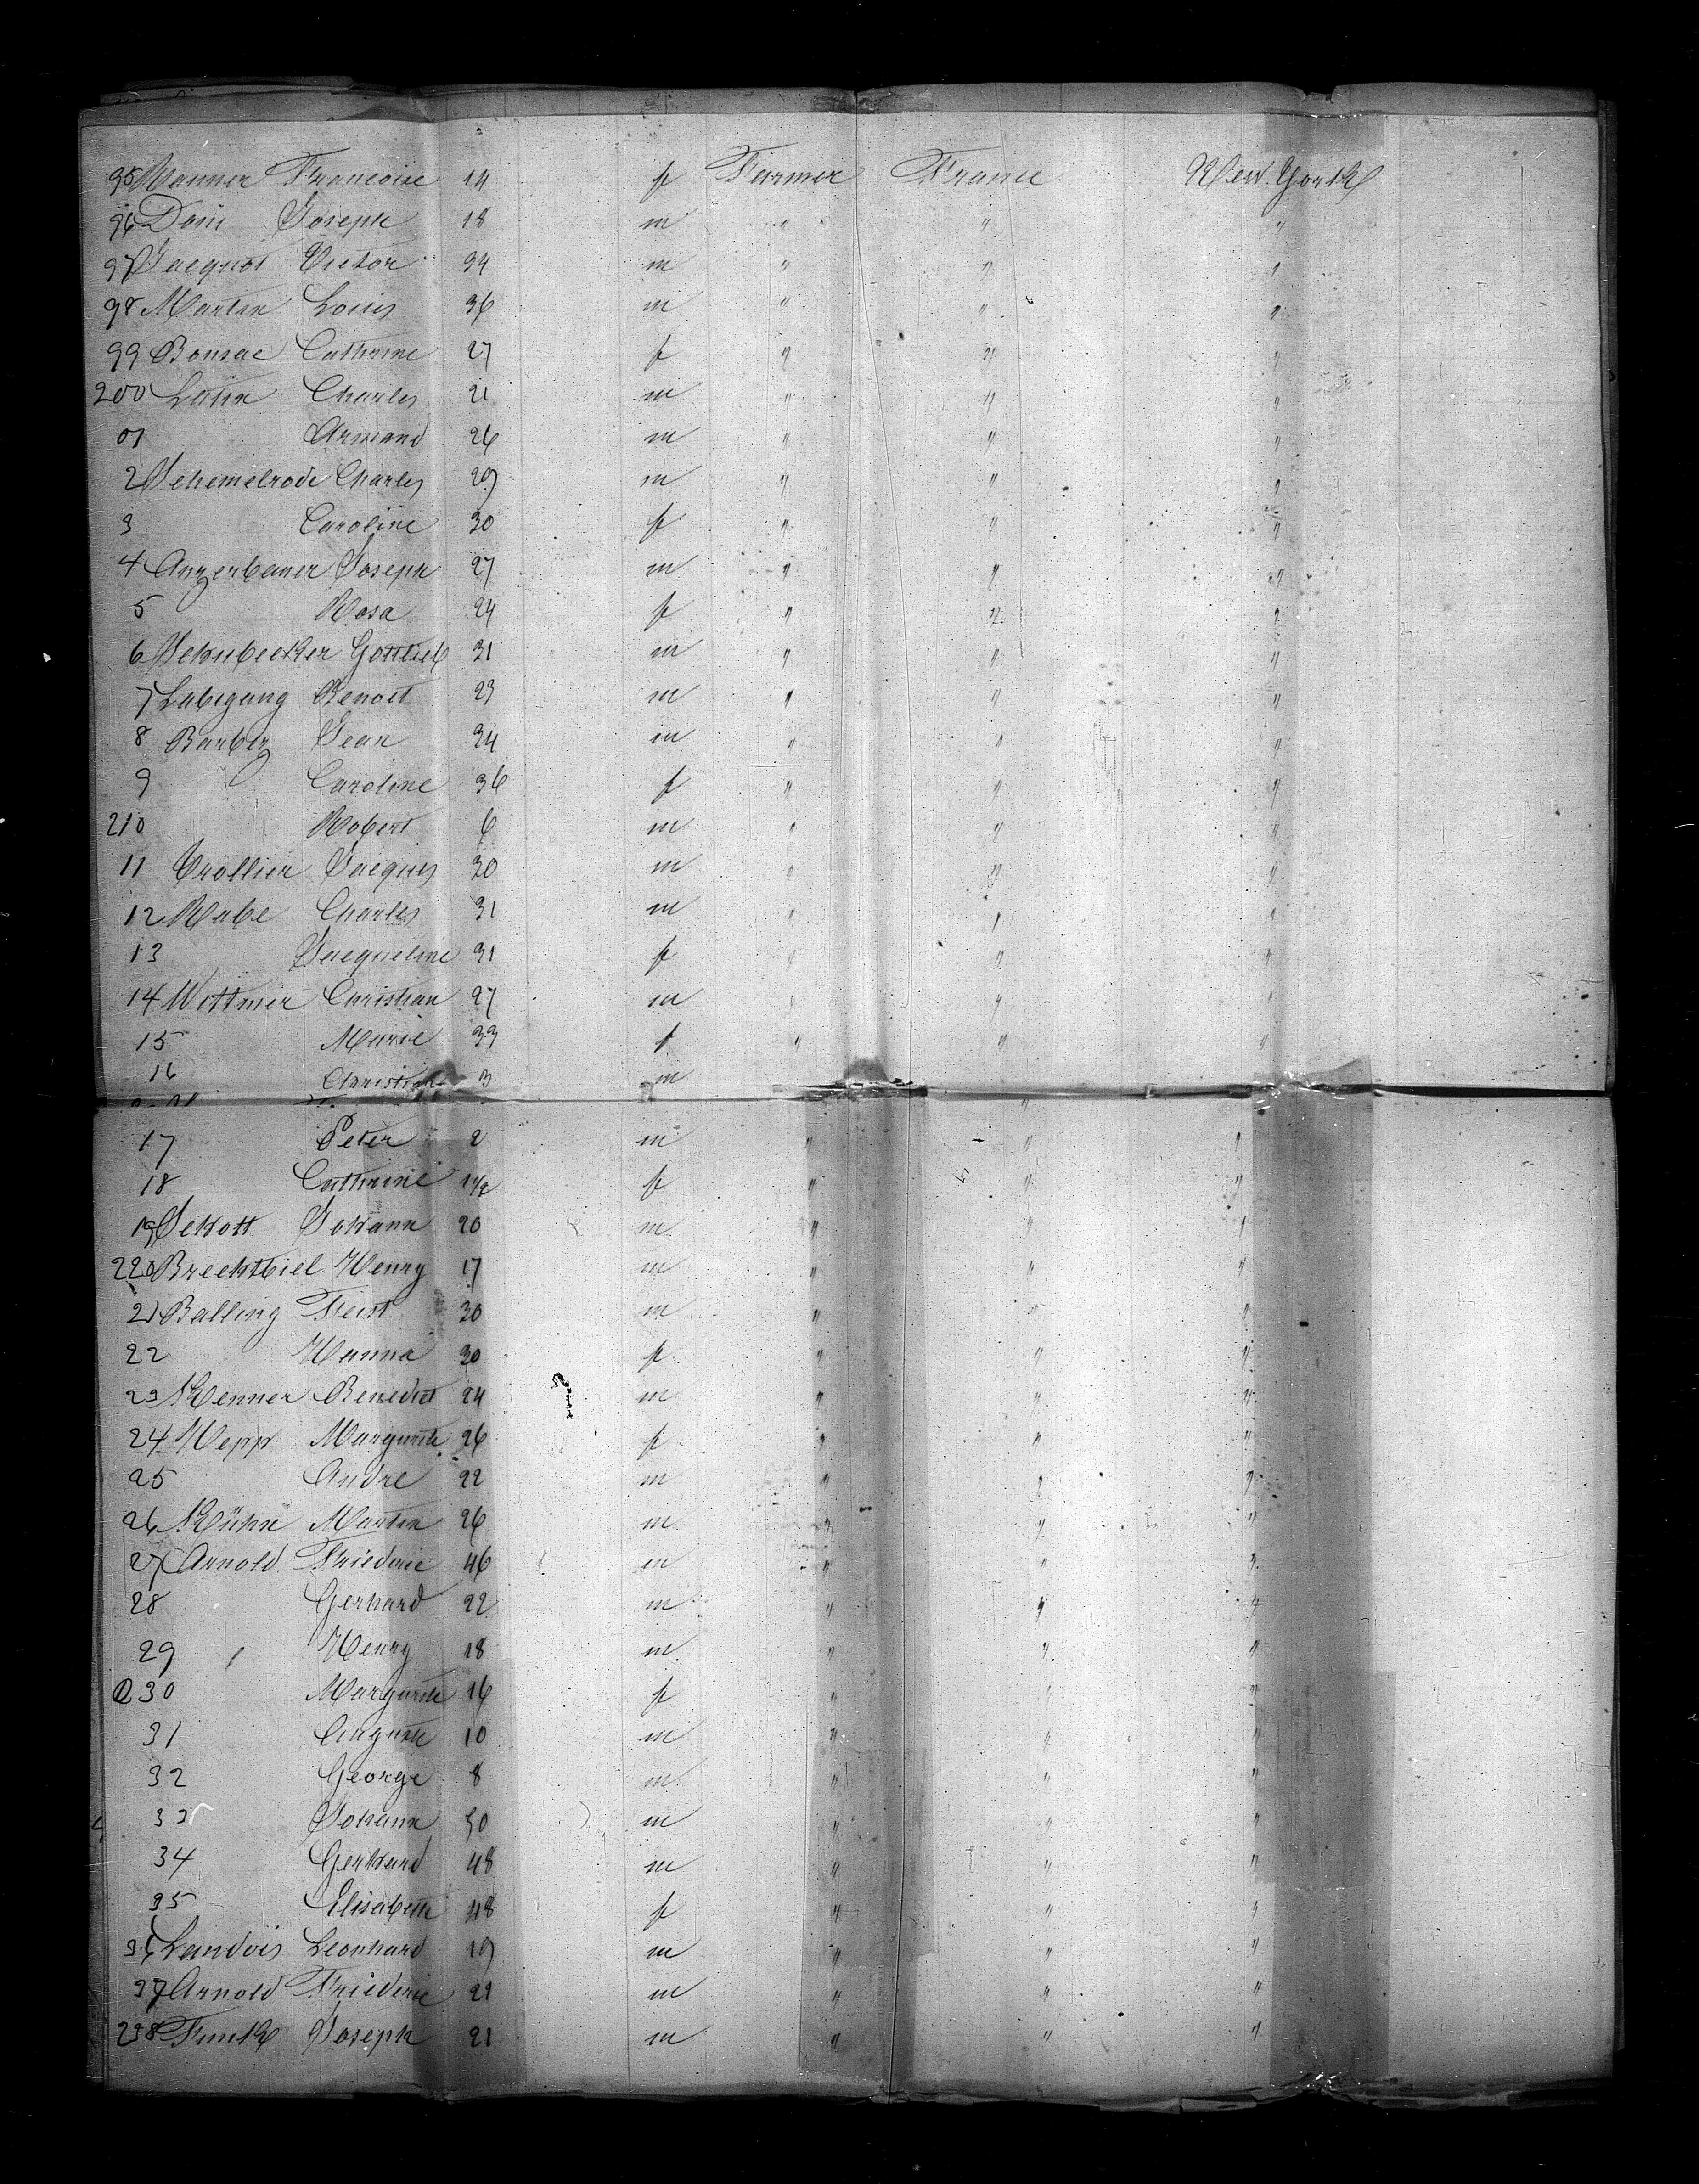 95 Wanner Francoise 14 f Farmer France New York
96 Dom Joseph 18 m " " "
97 Jacquot Victor 34 m " " "
98 Martin Louis 36 m " " "
99 Bonsac Cathrine 27 f " " "
200 Latin Charles 21 m " " "
01 Armand 26 m " " "
2 Schemelrode Charles 29 m " " "
3 Caroline 30 f " " "
4 Anzerbauer Joseph 27 m " " "
5 Rosa 24 f " " "
6 Schubecker Gottlieb 31 m " " "
7 Labigang Benoit 23 m " " "
8 Barbey Jean 34 m " " "
9 Caroline 36 f " " "
210 Robert 6 m " " "
11 Trollier Jacques 30 m " " "
12 Rabe Charles 31 m " " "
13 Jacqueline 31 f " " "
14 Wittmer Christian 27 m " " "
15 Marie 33 f " " "
16 Christian 3 m
17 Peter 2 m " " "
18 Cathrine 1 1/2 f " " "
19 Schott Johann 20 m " " "
220 Brechtbiel Henry 17 m " " "
21 Balling Feist 30 m " " "
22 Hanna 30 f " " "
23 Kenner Benedict 24 m " " "
24 Hepp Margarete 26 f " " "
25 Andre 22 m " " "
26 Kühn Martin 26 m " " "
27 Arnold Friederic 46 m " " "
28 Gerhard 22 m " " "
29 Henry 18 m " " "
230 Margarete 16 f " " "
31 August 10 m " " "
32 George 8 m " " "
33 Johann 50 m " " "
34 Gerhard 48 m " " "
35 Elisabeth 48 f " " "
36 Landois Leonhard 19 m " " "
37 Arnold Friederic 21 m " " "
238 Funk Joseph 21 m " " "